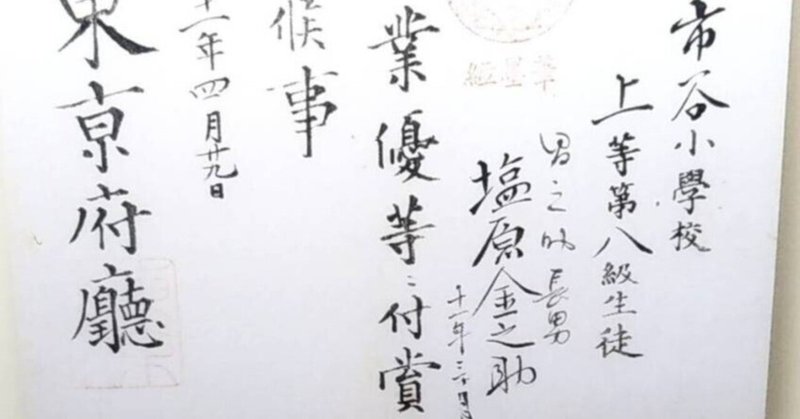 市谷小學校
上等第八級生徒
昌之助長男
塩原金之助
十一年三ヶ月
業優等ニ付賞
候事
十一年四月廿九日
東京府廳